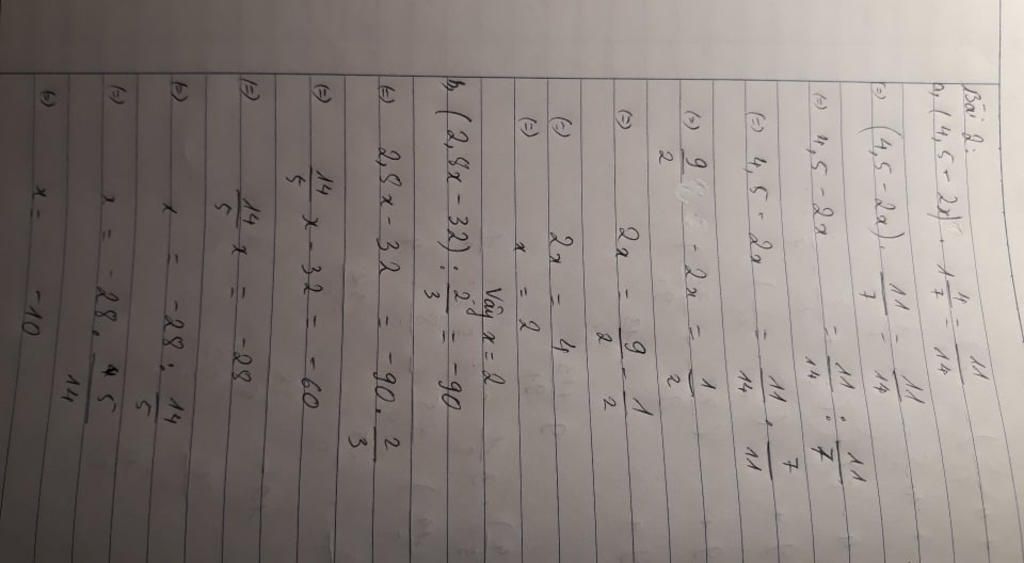 Bài 2:
a, (4,5 - 2x) . 1 4/7 = 11/14
(=) (4,5 - 2x) . 11/7 = 11/14
(=) 4,5 - 2x = 11/14 : 11/7
(=) 4,5 - 2x = 11/14 . 7/11
(=) 9/2 - 2x = 1/2
(=) 2x = 9/2 - 1/2
(=) 2x = 4
(=) x = 2
Vậy x = 2
b, (2,8x - 32) : 2/3 = -90
(=) 2,8x - 32 = -90 . 2/3
(=) 14/5 x - 32 = -60
(=) 14/5 x = -28
(=) x = -28 : 14/5
(=) x = -28 . 5/14
(=) x = -10